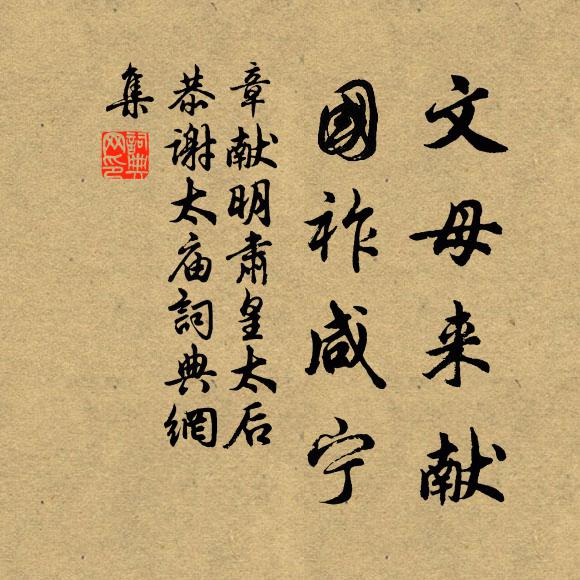 文母来献
國祚咸宁
章献明肃皇太后
恭谢太庙詞典網
集
詞典
网印